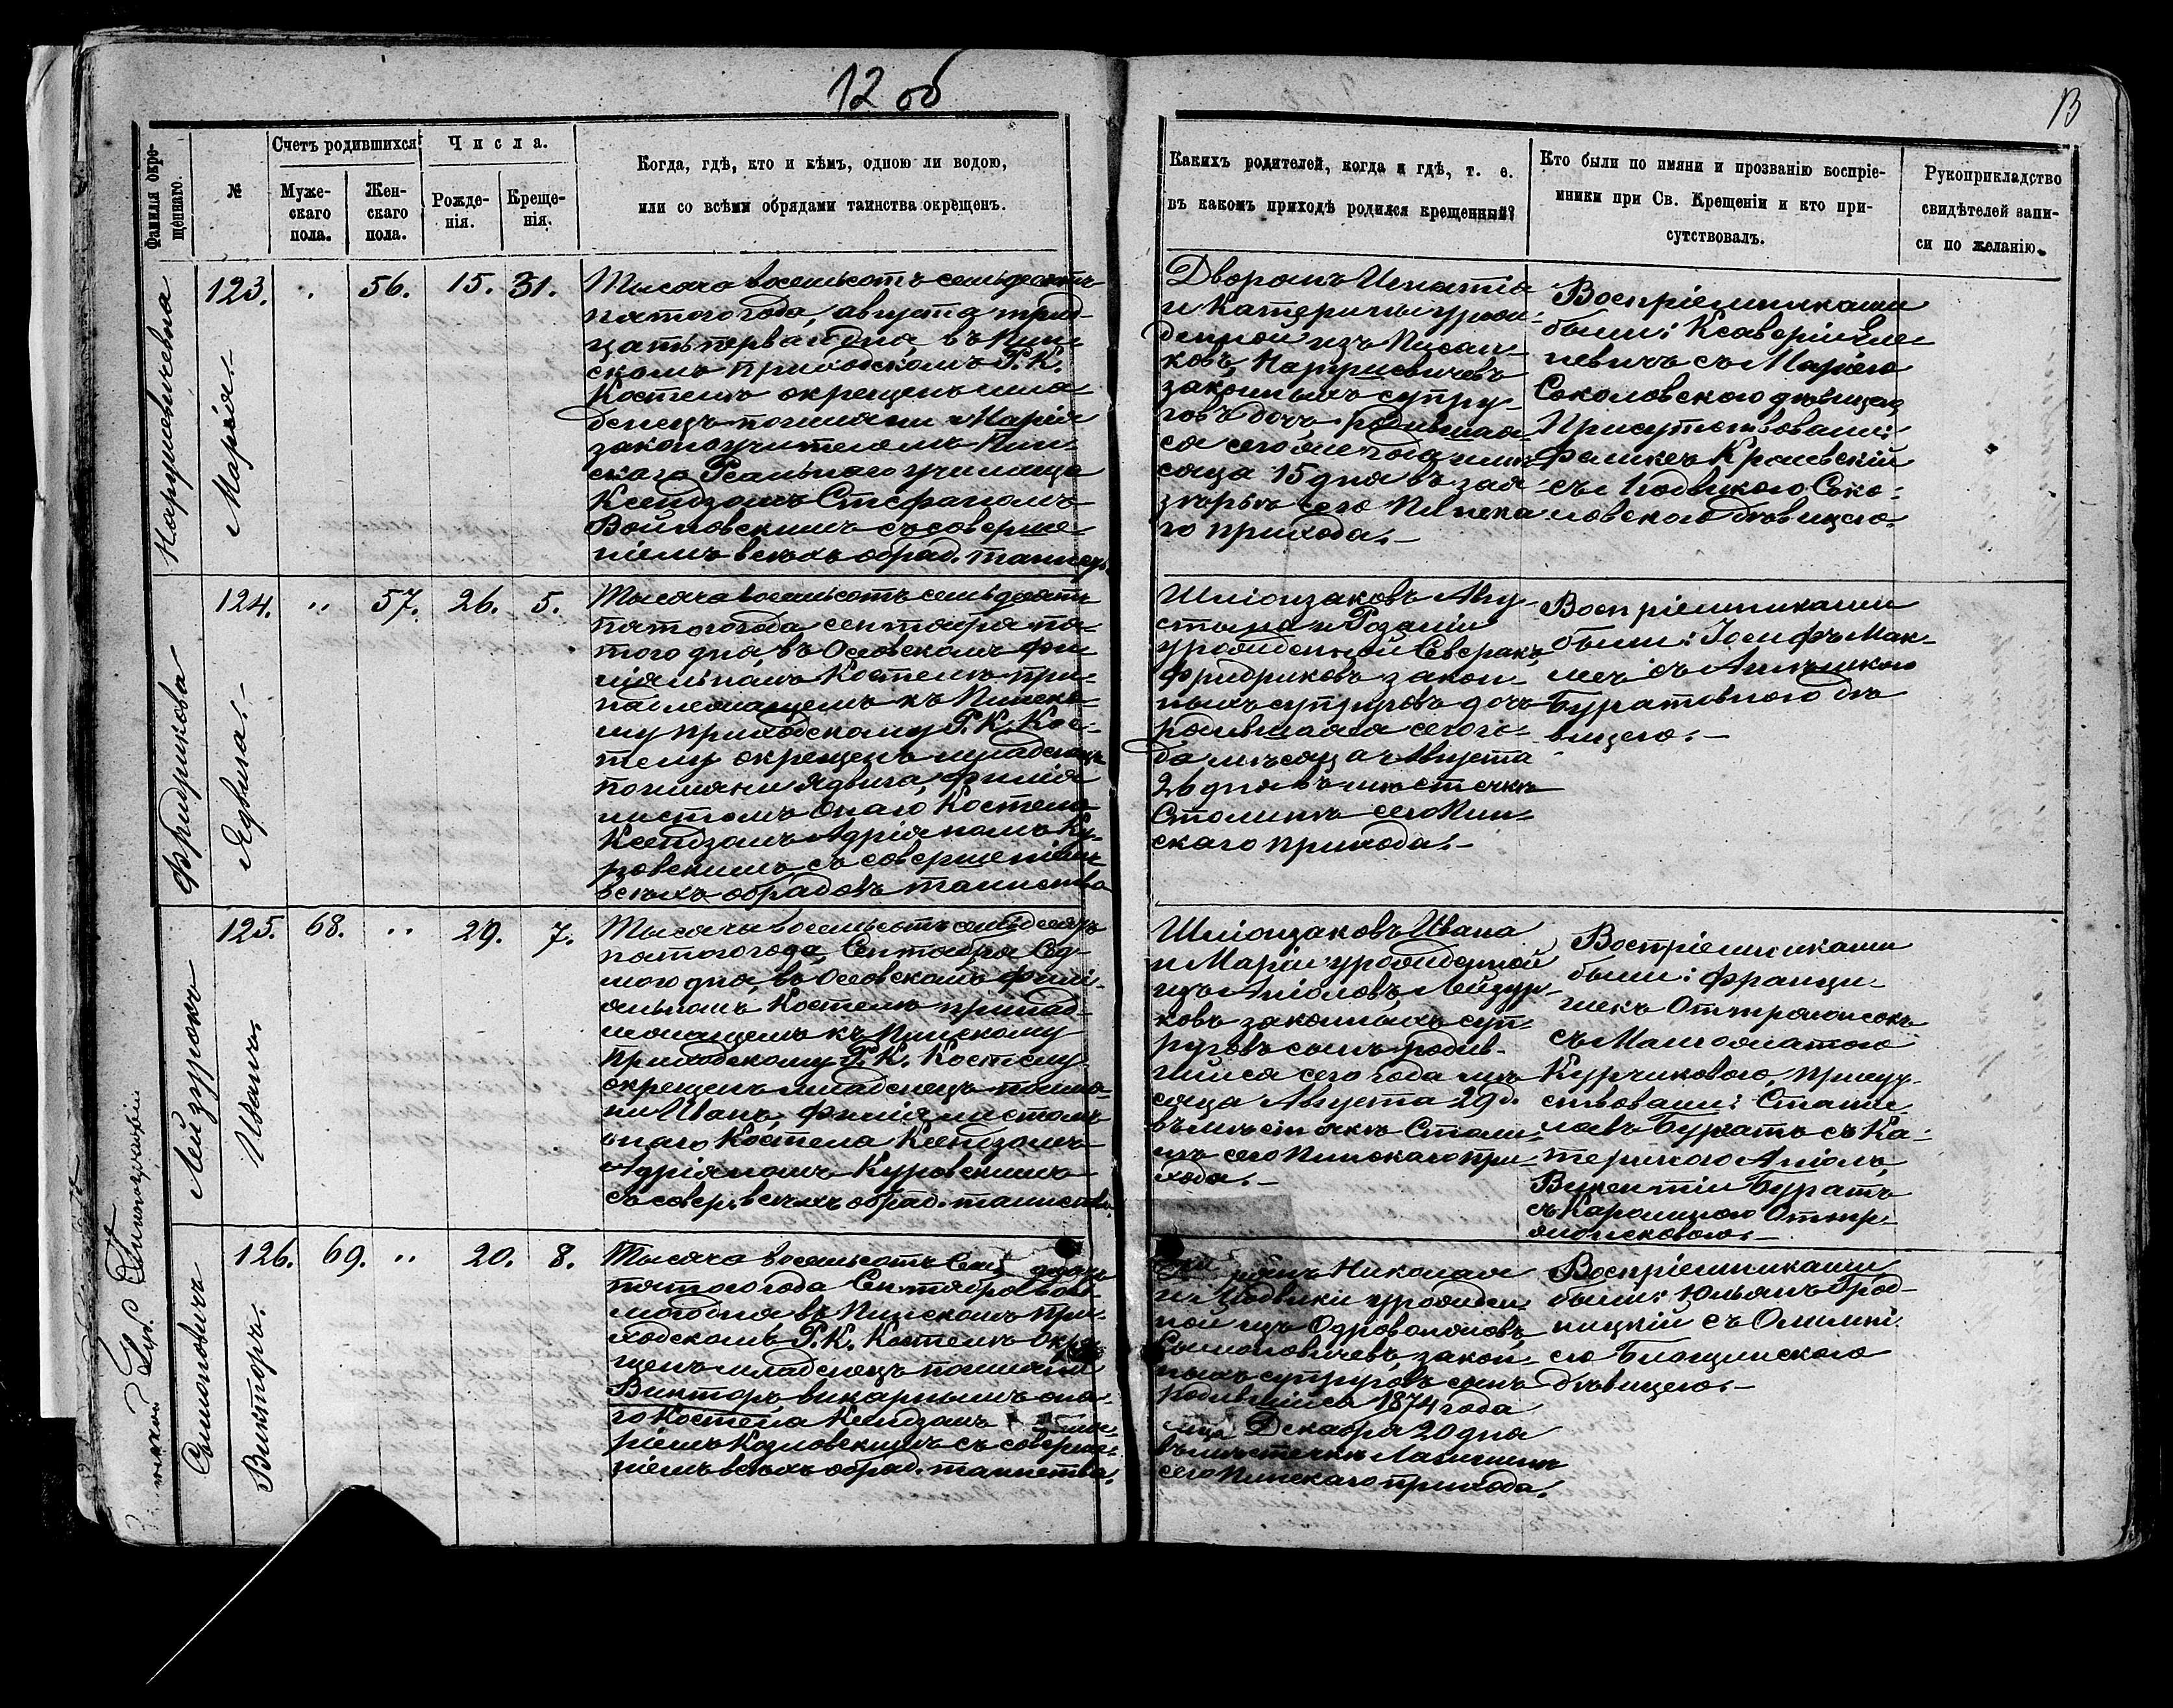 12 об
13
Фамилія окре-
щеннаго.
№
Счетъ родившихся
Муже-
скаго
пола.
Жен-
скаго
пола.
Числа.
Рожде-
нія.
Креще-
нія.
Когда, гдѣ, кто и кѣмъ, одною ли водою,
или со всѣми обрядами таинства окрещенъ.
Какихъ родителей, когда и гдѣ, т. е.
въ какомъ приходѣ родился крещенный?
Кто были по имяни и прозванію воспріе-
мники при Св. Крещеніи и кто при-
сутствовалъ.
Рукоприкладство
свидѣтелей запи-
си по желанію.
Нарушевичевна
Марія.
123.
56.
15.
31.
Тысяча восемьсотъ семьдесятъ
пятого года, августа трид-
цать первого дня, въ Пин-
скомъ приходскомъ Р. К.
Костелѣ окрещенъ мла-
денецъ по имяни Марія
законоучителемъ Пин-
скаго Реальнаго училища
Ксендзомъ Стефаномъ
Войновскимъ съ соверше-
ніемъ всѣхъ обряд. таинст.
Дворянъ Игнатія
и Катерины урож-
денной изъ
Нарушевичевъ
законныхъ супру-
говъ дочь, родившая-
ся сего же года мѣ-
сяца 15 дня въ
сего Пинска
го прихода.
Воспріемниками
были: Ксаверій
съ Маріею
Соколовскою дѣвицею,
Присутствовали:
Феликсъ Краевскій
съ Ядвигою Соко-
ловскою дѣвицею.
Фридрикова
Ядвига.
124.
57.
26.
5.
Тысяча восемьсотъ семьдесятъ
пятого года сентября пя-
того дня, въ Осовскомъ фи-
ліяльномъ Костелѣ при-
надлежащемъ къ Пинско-
му приходскому Р. К. Кос-
телу окрещенъ младенецъ
по имяни Ядвига, филія-
листомъ онаго Костела
Ксендзомъ Адріяномъ Ку-
ровскимъ, съ совершеніемъ
всѣхъ обрядовъ таинства
Шліонзаковъ Авгу-
стына и Розаліи
урожденной
Фридриковъ закон-
ныхъ супруговъ дочь
родившаяся сего го-
да мѣсяца Августа
26 дня въ мѣстечкѣ
Столинѣ сего Пин-
скаго прихода.
Воспріемниками
были: Іосифъ Мак-
съ
Буратовною дѣ-
вицею.
Лейзурокъ
Иванъ.
125.
68.
29.
7.
Тысяча восемьсотъ семьдесятъ
пятого года, Сентября Сед-
мого дня, въ Осовскомъ филі-
яльномъ Костелѣ принад-
лежащемъ къ Пинскому
приходскому Р. К. Костелу
окрещенъ младенецъ по имя-
ни Иванъ, филіялистомъ
онаго Костела Ксендзомъ
Адріяномъ Куровскимъ
съ совер. всѣхъ обряд. таинства
Шліонзаковъ Ивана
и Маріи урожденной
изъ Аніоловъ Лейзур-
ковъ законныхъ суп-
руговъ сынъ родив-
шійся сего года мѣ-
сяца Августа 29 д.
въ мѣстечкѣ Столи-
нѣ сего Пинскаго при-
хода.
Воспріемниками
были: Франци-
шекъ
съ Малгожатою
Курчиковою, присут-
ствовали: Стани-
лавъ Буратъ съ Ка-
териною Аніолъ,
Викентій Буратъ
съ Каролиною
Самоновичъ
Викторъ.
126.
69.
20.
8.
Тысяча восемьсотъ семьдесятъ
пятого года Сентября вось-
мого дня, въ Пинскомъ при-
ходскомъ Р. К. Костелѣ окре-
щенъ младенецъ по имяни
Викторъ викарнымъ она-
го Костела Ксендзомъ
Козловскимъ съ соверше-
ніемъ всѣхъ обряд. таинства.
Николая
и Ядвиги урожден-
ной изъ Одровонжовъ
Самоновичевъ, закон-
ныхъ супруговъ сынъ
родившійся 1874 года
Декабря 20 дня
въ мѣстечкѣ Логишинѣ
сего Пинскаго прихода.
Воспріемниками
были: Юльянъ Грод-
ницкій съ
дѣвицею.